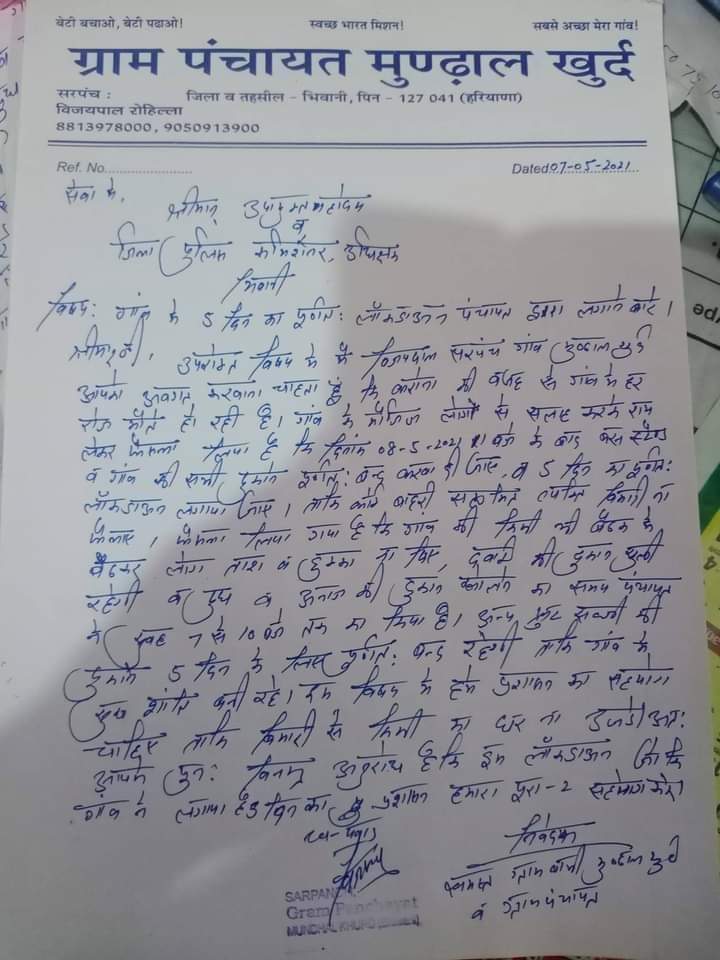 बेटी बचाओ, बेटी पढाओ! स्वच्छ भारत मिशन! सबसे अच्छा मेरा गांव!
ग्राम पंचायत मुण्ढ़ाल खुर्द
सरपंच : जिला व तहसील - भिवानी, पिन - 127 041 (हरियाणा)
विजयपाल रोहिल्ला
8813978000, 9050913900
Ref. No. Dated 07-05-2021
सेवा में,
श्रीमान् उपायुक्त महोदय
व
जिला पुलिस अधिक्षक
भिवानी
विषय: गांव में 5 दिन का पूर्णत: लॉकडाऊन पंचायत द्वारा लगाने बारे।
श्रीमान् जी, उपरोक्त विषय में मैं विजयपाल सरपंच गांव मुण्ढाल खुर्द
आपको अवगत करवाना चाहता हूँ कि कोरोना की वजह से गांव में हर
रोज मौते हो रही है। गांव के मौजिज लोगों से सलाह करके राय
लेकर फैसला लिया है कि दिनांक 08-5-2021 बजे के बाद बस स्टैण्ड
व गांव की सभी दुकाने पूर्णत: बन्द करवा दी जाए, व 5 दिन का पूर्णत:
लॉकडाऊन लगाया जाए। ताकि कोई बाहरी व्यक्ति बिमारी ना
फैलाए। फैसला लिया गया है कि गांव की किसी भी बैठक में
बैठकर लोग ताश व हुक्का ना पिए, दवाई की दुकान खुली
रहेगी व दुध व अनाज की दुकान खोलने का समय पंचायत
ने सुबह 7 से 10 बजे तक का किया है। अन्य फ्रुट सब्जी की
दुकाने 5 दिन के लिए पूर्णत: बन्द रहेगी ताकि गांव में
सुख शांति बनी रहे। इस विषय में हमें प्रशासन का सहयोग
चाहिए ताकि बिमारी से किसी का घर ना उजडे। अत:
आपसे पुन: विनम्र अनुरोध है कि इस लॉकडाऊन जो कि
गांव ने लगाया है 5 दिन का प्रशासन हमारा पूरा-2 सहयोग करे।
धन्यवाद
निवेदक
समस्त ग्रामवासी मुण्ढाल खुर्द
व ग्राम पंचायत
SARPANCH
Gram Panchayat
MUNDHAL KHURD